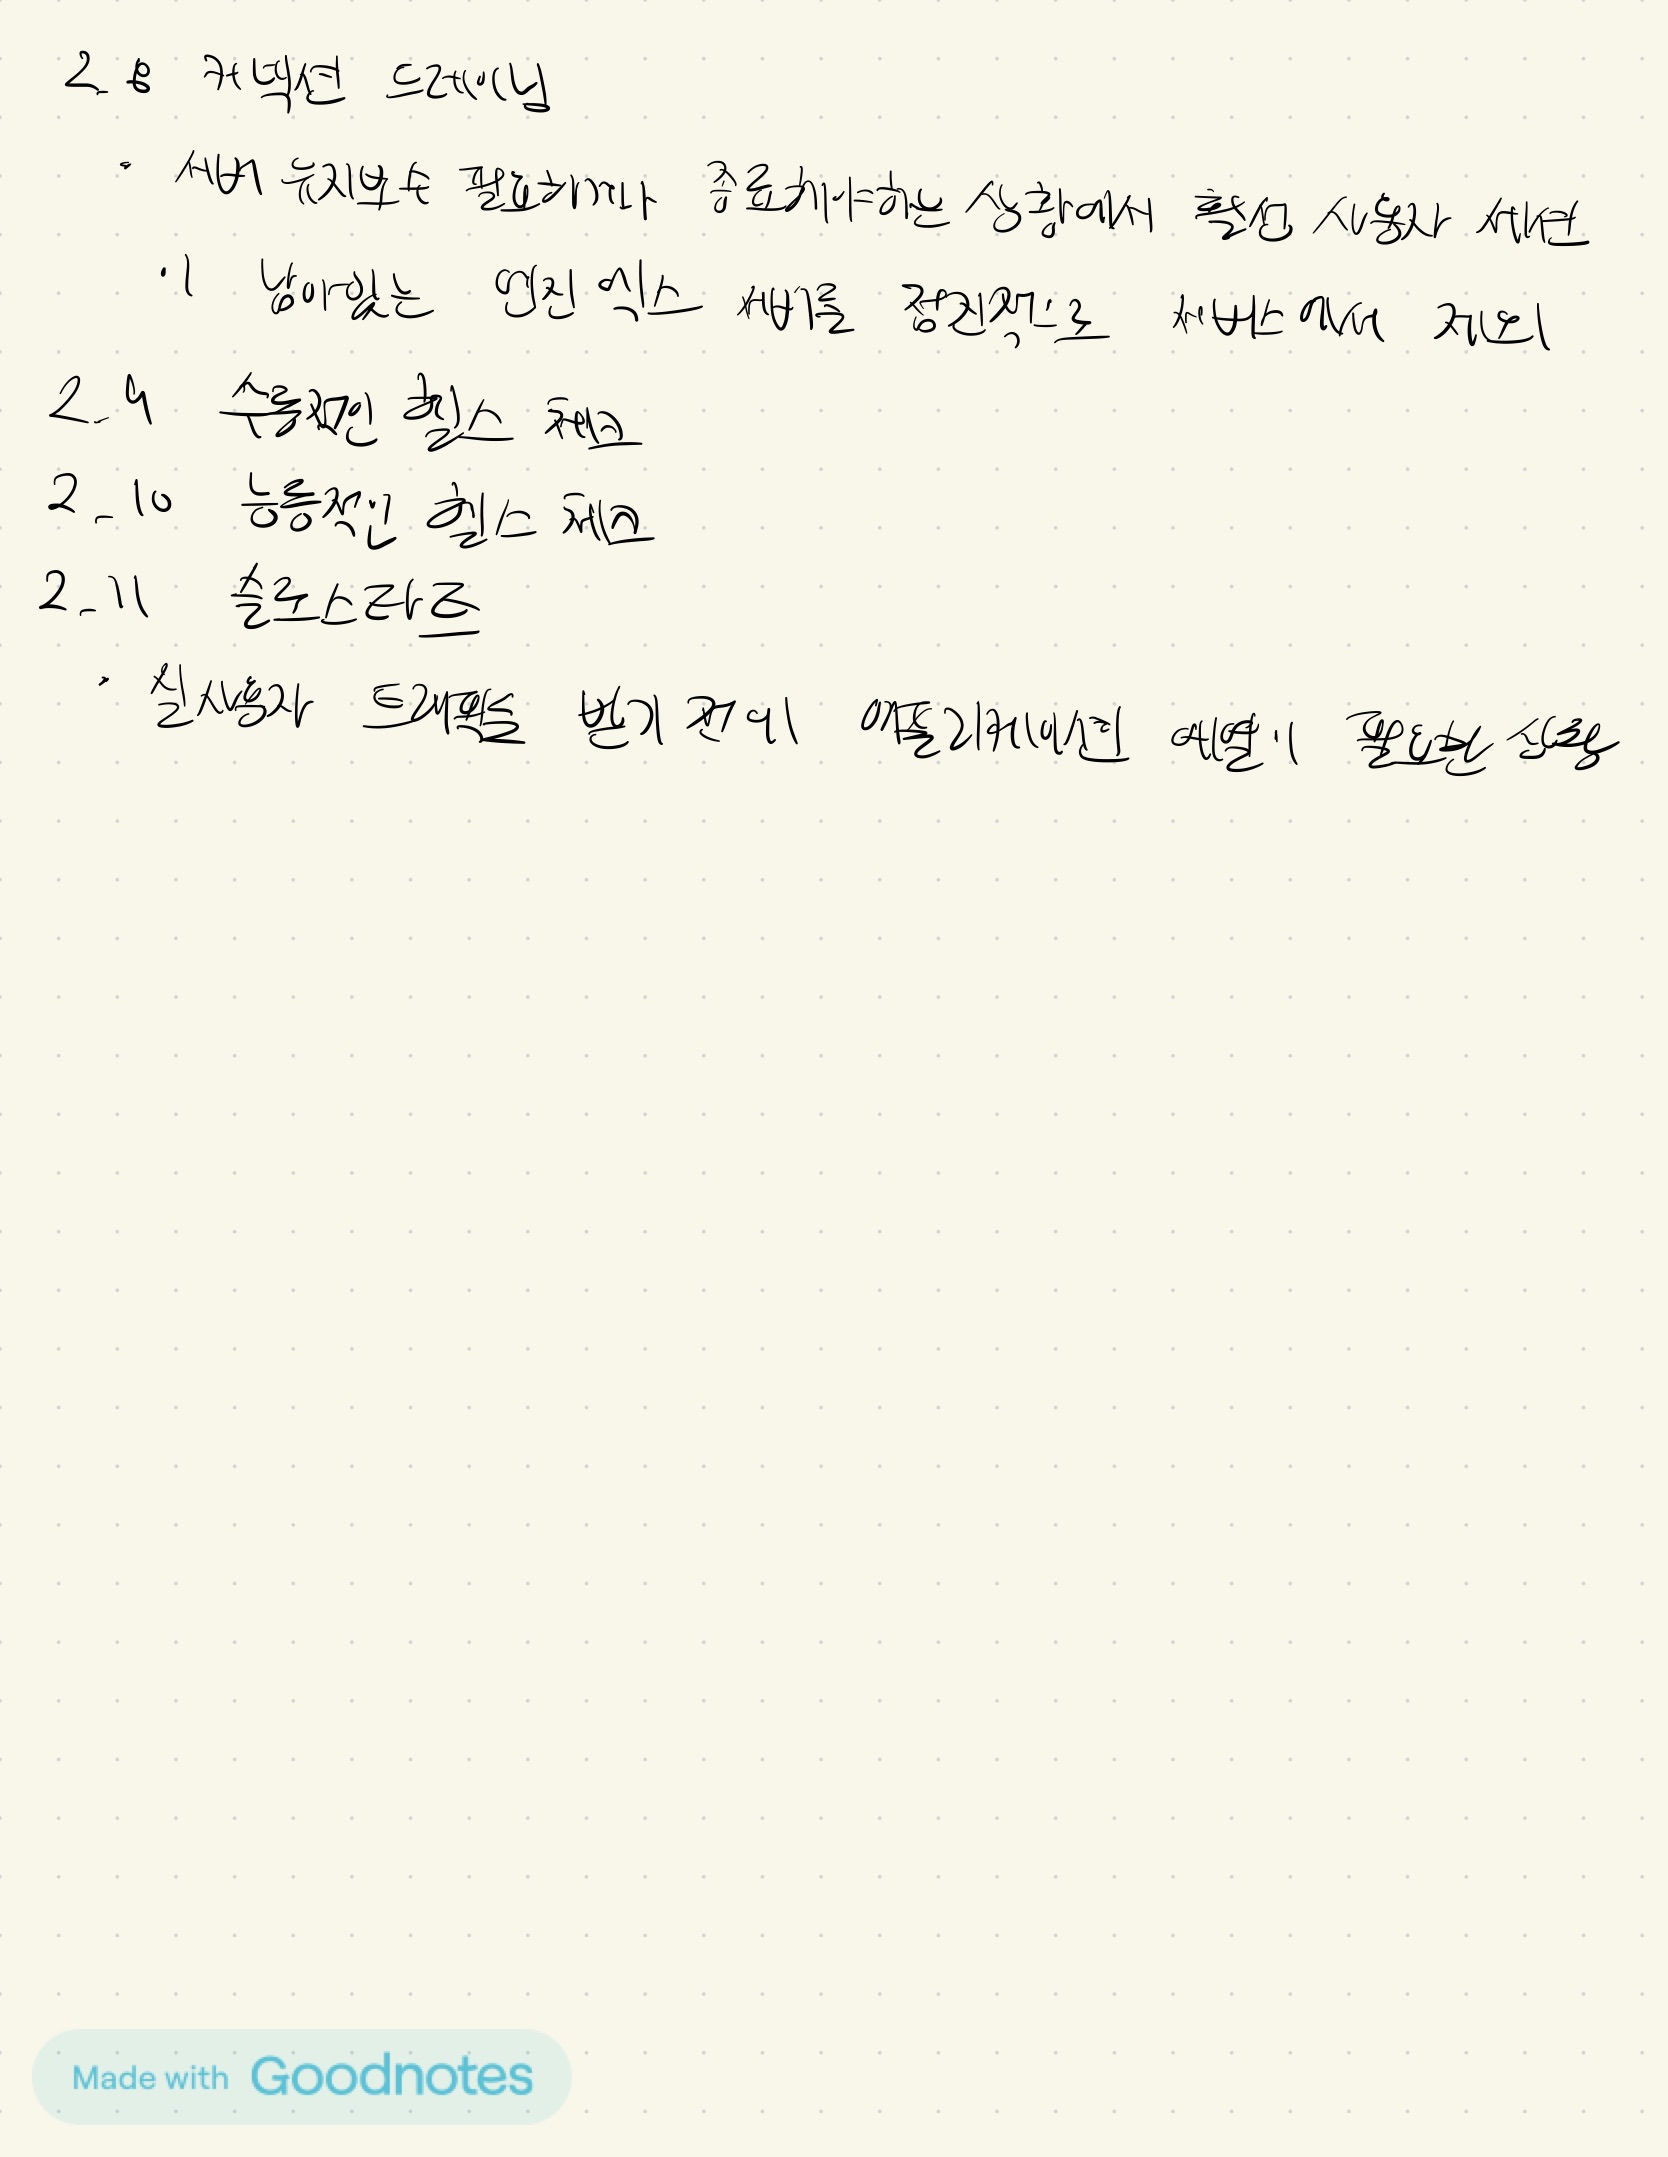 2.8 커넥션 드레이닝
· 서버 유지보수 필요하거나 종료해야하는 상황에서 활성 사용자 세션
이 남아있는 엔진엑스 서버를 점진적으로 서버스에서 제외
2.9 수동적인 헬스 체크
2.10 능동적인 헬스 체크
2.11 슬로스타트
· 실사용자 트래픽을 받기 전에 애플리케이션 예열이 필요한 상황
Made with Goodnotes